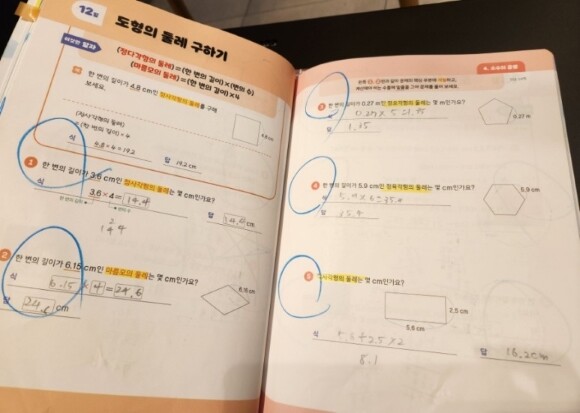 12일
도형의 둘레 구하기
(정다각형의 둘레) = (한 변의 길이)×(변의 수)
(마름모의 둘레) = (한 변의 길이)×4
한 변의 길이가 4.8 cm인 정사각형의 둘레를 구해
보세요.
(정사각형의 둘레)
= (한 변의 길이) × 4
4.8 cm
식 4.8 × 4 = 19.2
답 19.2 cm
1 한 변의 길이가 3.6 cm인 정사각형의 둘레는 몇 cm인가요?
식 3.6 × 4 = 14.4
답 14.4 cm
2
144
2 한 변의 길이가 6.15 cm인 마름모의 둘레는 몇 cm인가요?
식 6.15 × 4 = 24.6
6.15 cm
답 24.6 cm
3 한 변의 길이가 0.27 m인 정오각형의 둘레는 몇 m인가요?
0.27 m
답 1.35
4 한 변의 길이가 5.9 cm인 정육각형의 둘레는 몇 cm인가요?
5.9 cm
식 5.9 × 6 = 35.4
답 35.4
5 직사각형의 둘레는 몇 cm인가요?
2.5 cm
5.6 cm
식 5.6 + 2.5 × 2
8.1
답 16.2 cm